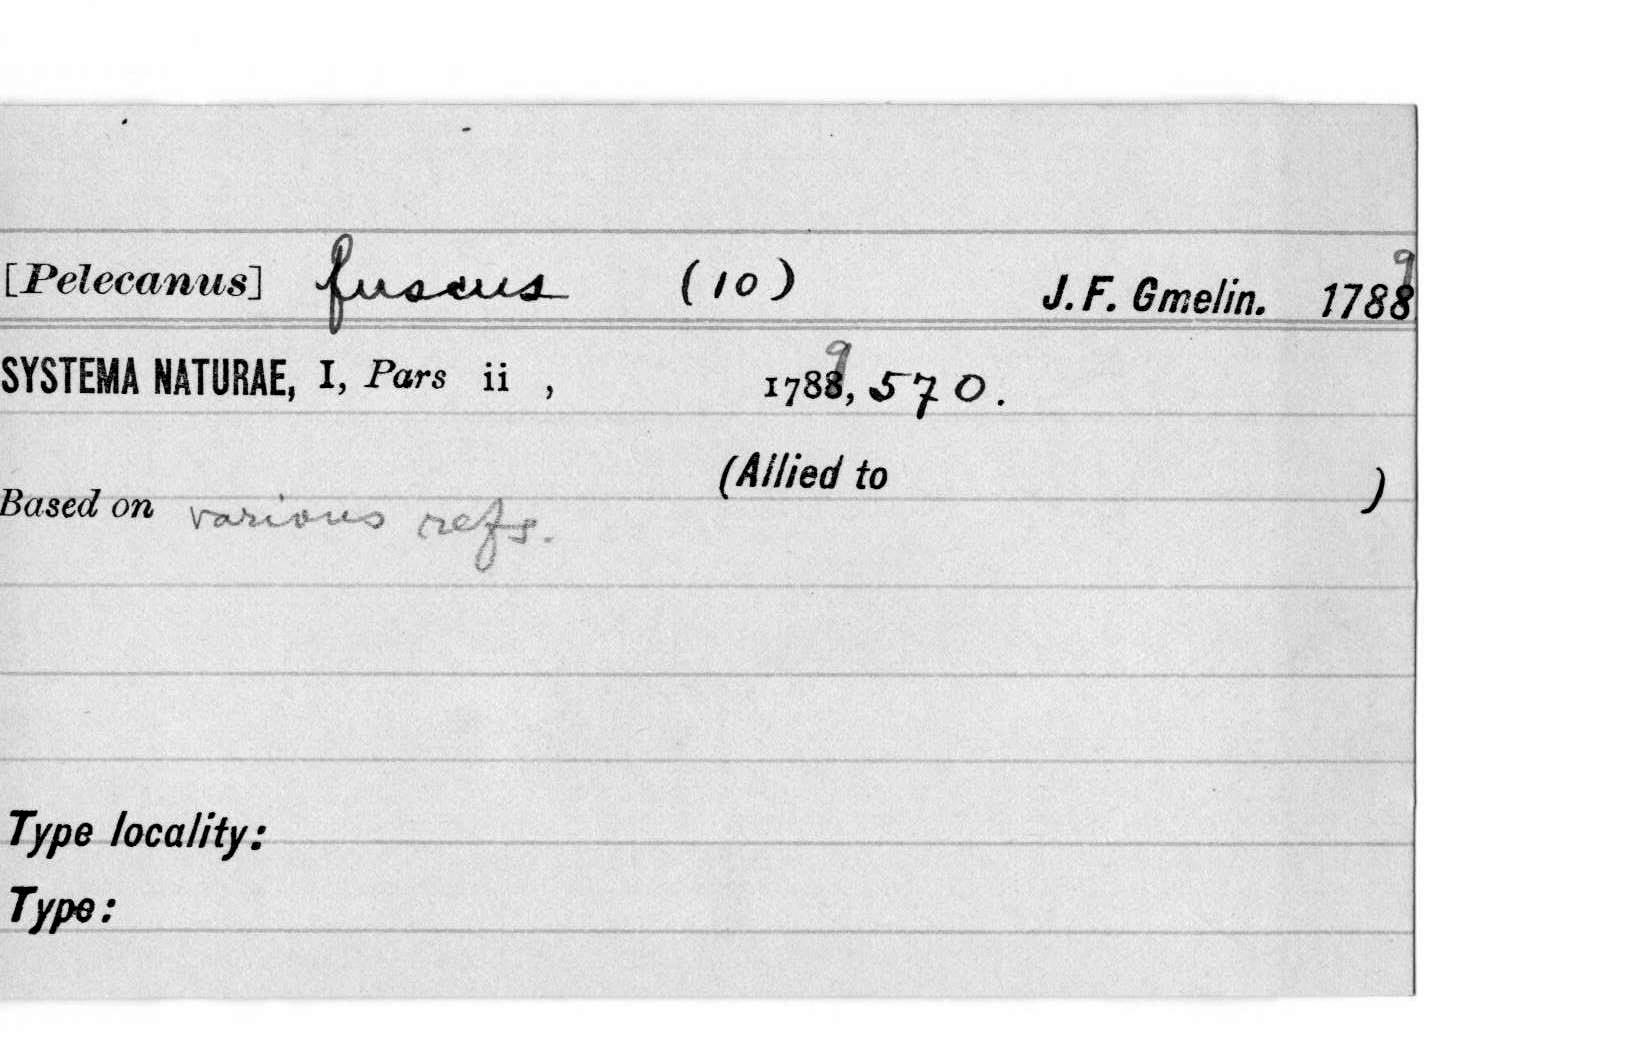 [Pelecanus] fuscus (10) J. F. Gmelin. 1789
SYSTEMA NATURAE, I, Pars ii , 1789, 570.
(Allied to )
Based on various refs.
Type locality:
Type: